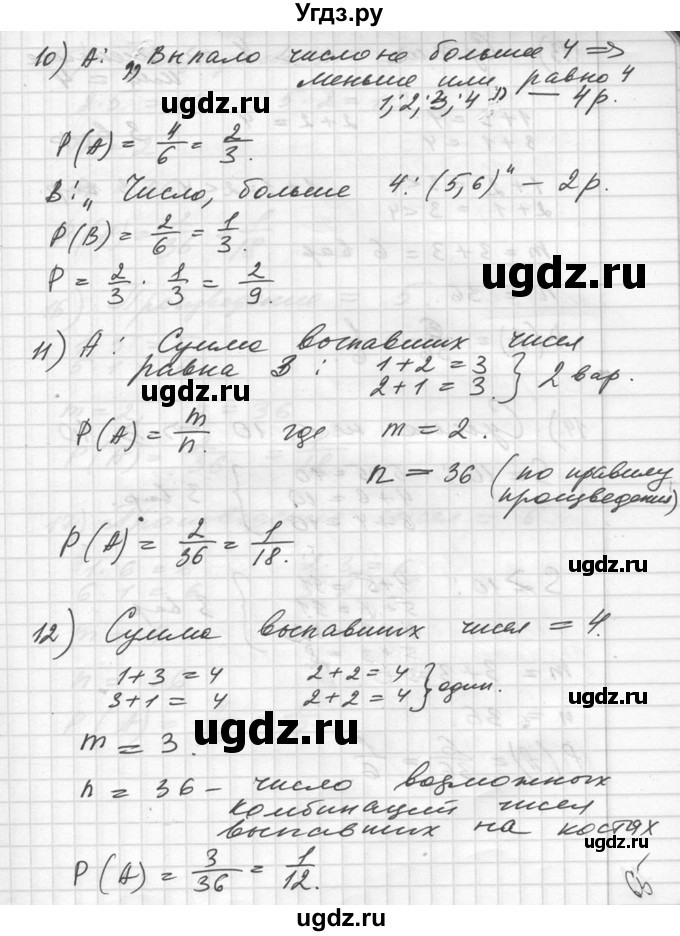 Угдз.ру
10) A: „Выпало число не больше 4 =>
меньше или равно 4
1; 2; 3; 4" — 4 р.
P(A) = 4/6 = 2/3.
B: „Число, больше 4: (5,6)" – 2 р.
P(B) = 2/6 = 1/3.
P = 2/3 · 1/3 = 2/9.
11) A: Сумма выпавших чисел
равна 3: 1+2=3
2+1=3. } 2 вар.
P(A) = m/n. где m = 2.
n = 36 (по правилу
произведения)
P(A) = 2/36 = 1/18.
12) Сумма выпавших чисел = 4.
1+3=4 2+2=4
3+1=4 2+2=4 } один.
m = 3.
n = 36 – число возможных
комбинаций чисел
выпавших на костях
P(A) = 3/36 = 1/12.
ugdz.ru
ugdz.ru
ugdz.ru
ugdz.ru
ugdz.ru
ugdz.ru
ugdz.ru
ugdz.ru
ugdz.ru
ugdz.ru
ugdz.ru
ugdz.ru
ugdz.ru